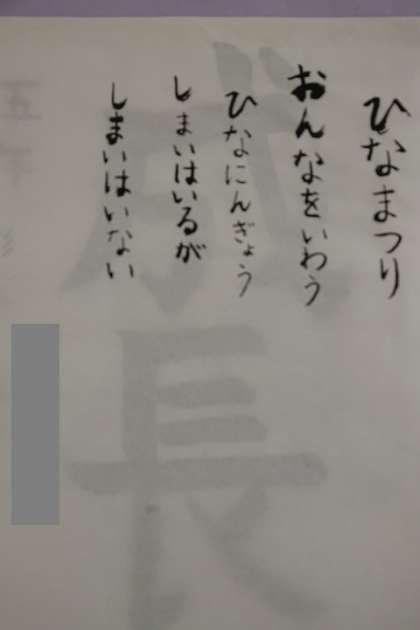 ひなまつり
おんなをいわう
ひなにんぎょう
しまいはいるが
しまいはいない
成長